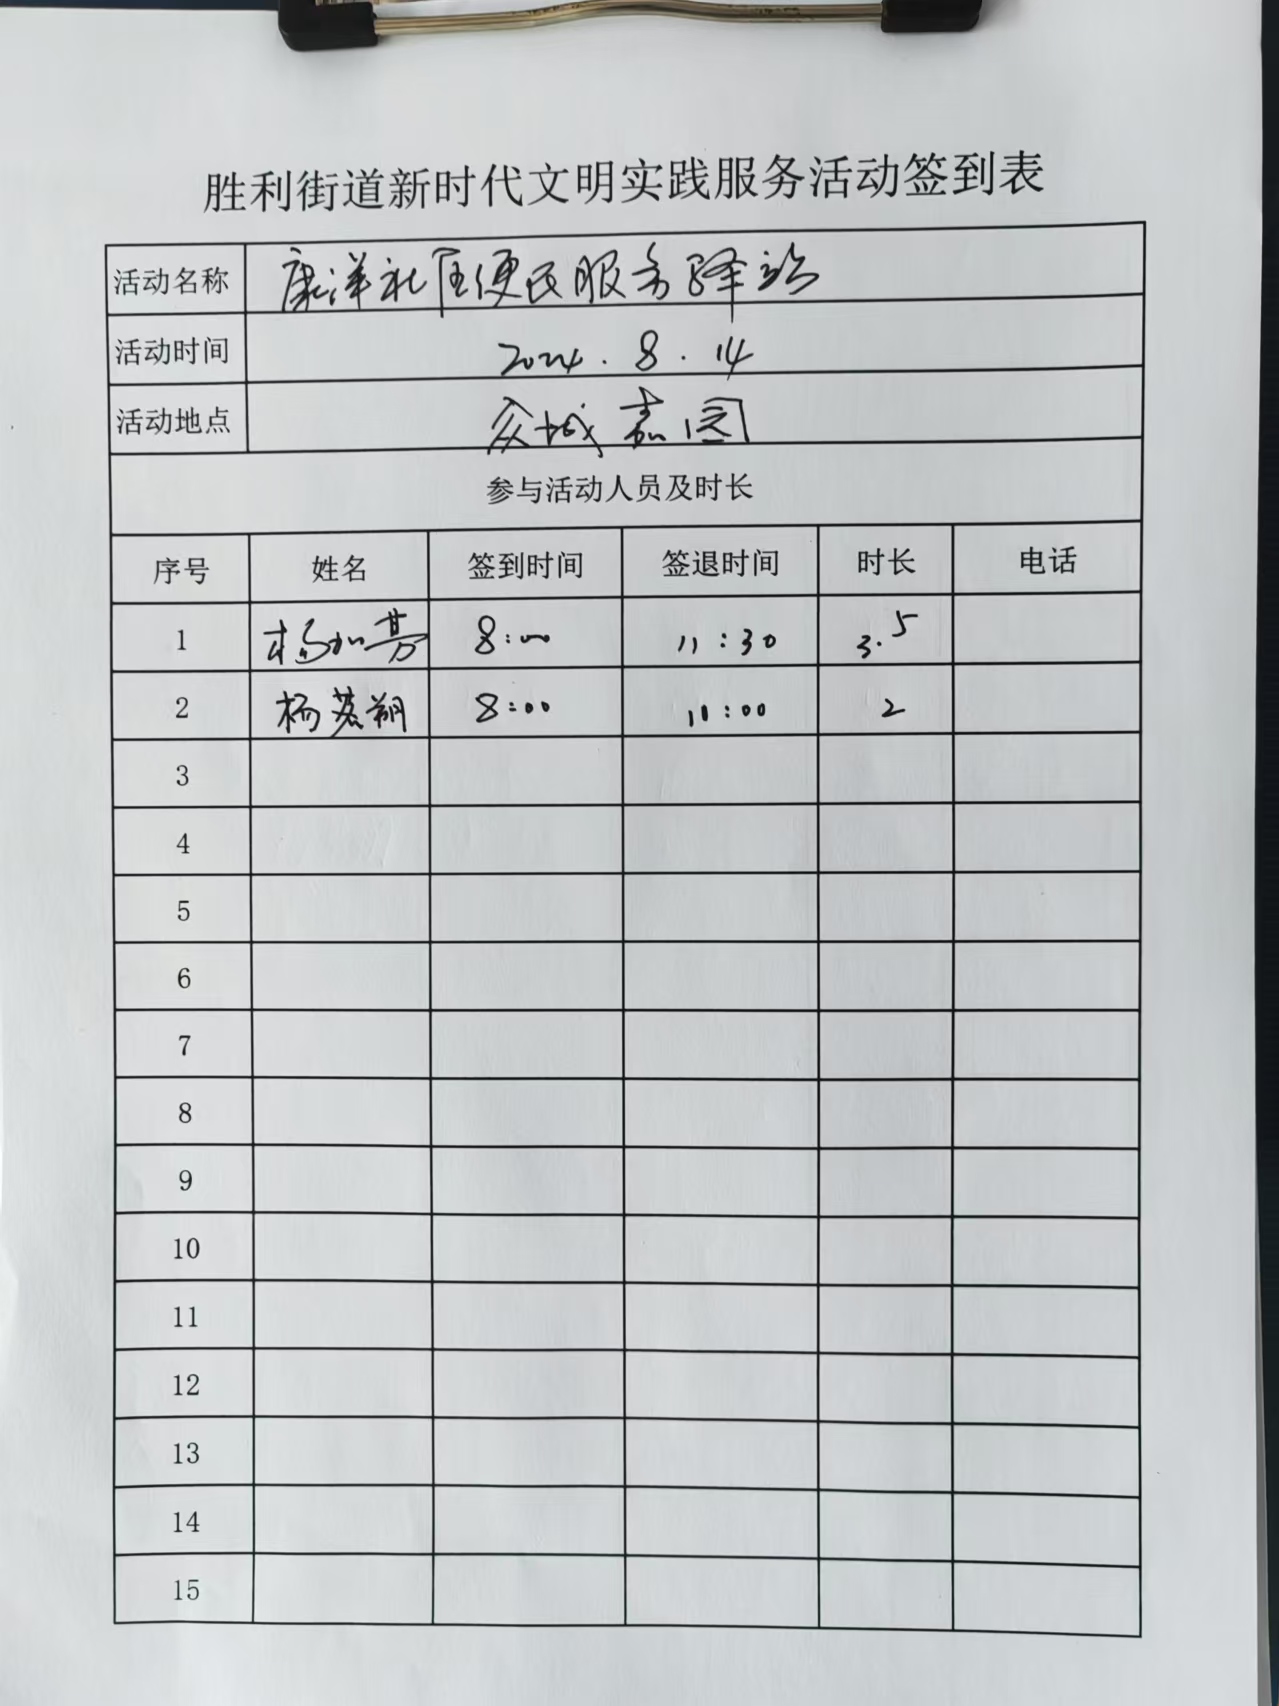 胜利街道新时代文明实践服务活动签到表
活动名称 康洋社区便民服务驿站
活动时间 2024.8.14
活动地点 众城嘉园
参与活动人员及时长
序号 姓名 签到时间 签退时间 时长 电话
1 杨加芳 8:00 11:30 3.5
2 杨茗朔 8:00 10:00 2
3
4
5
6
7
8
9
10
11
12
13
14
15